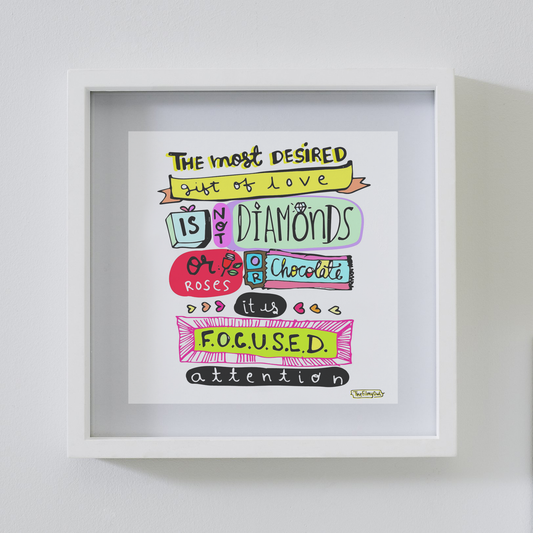 THE most DESIRED
gift of love
IS NOT DIAMONDS
or ROSES OR Chocolate
it is
F.O.C.U.S.E.D.
attention